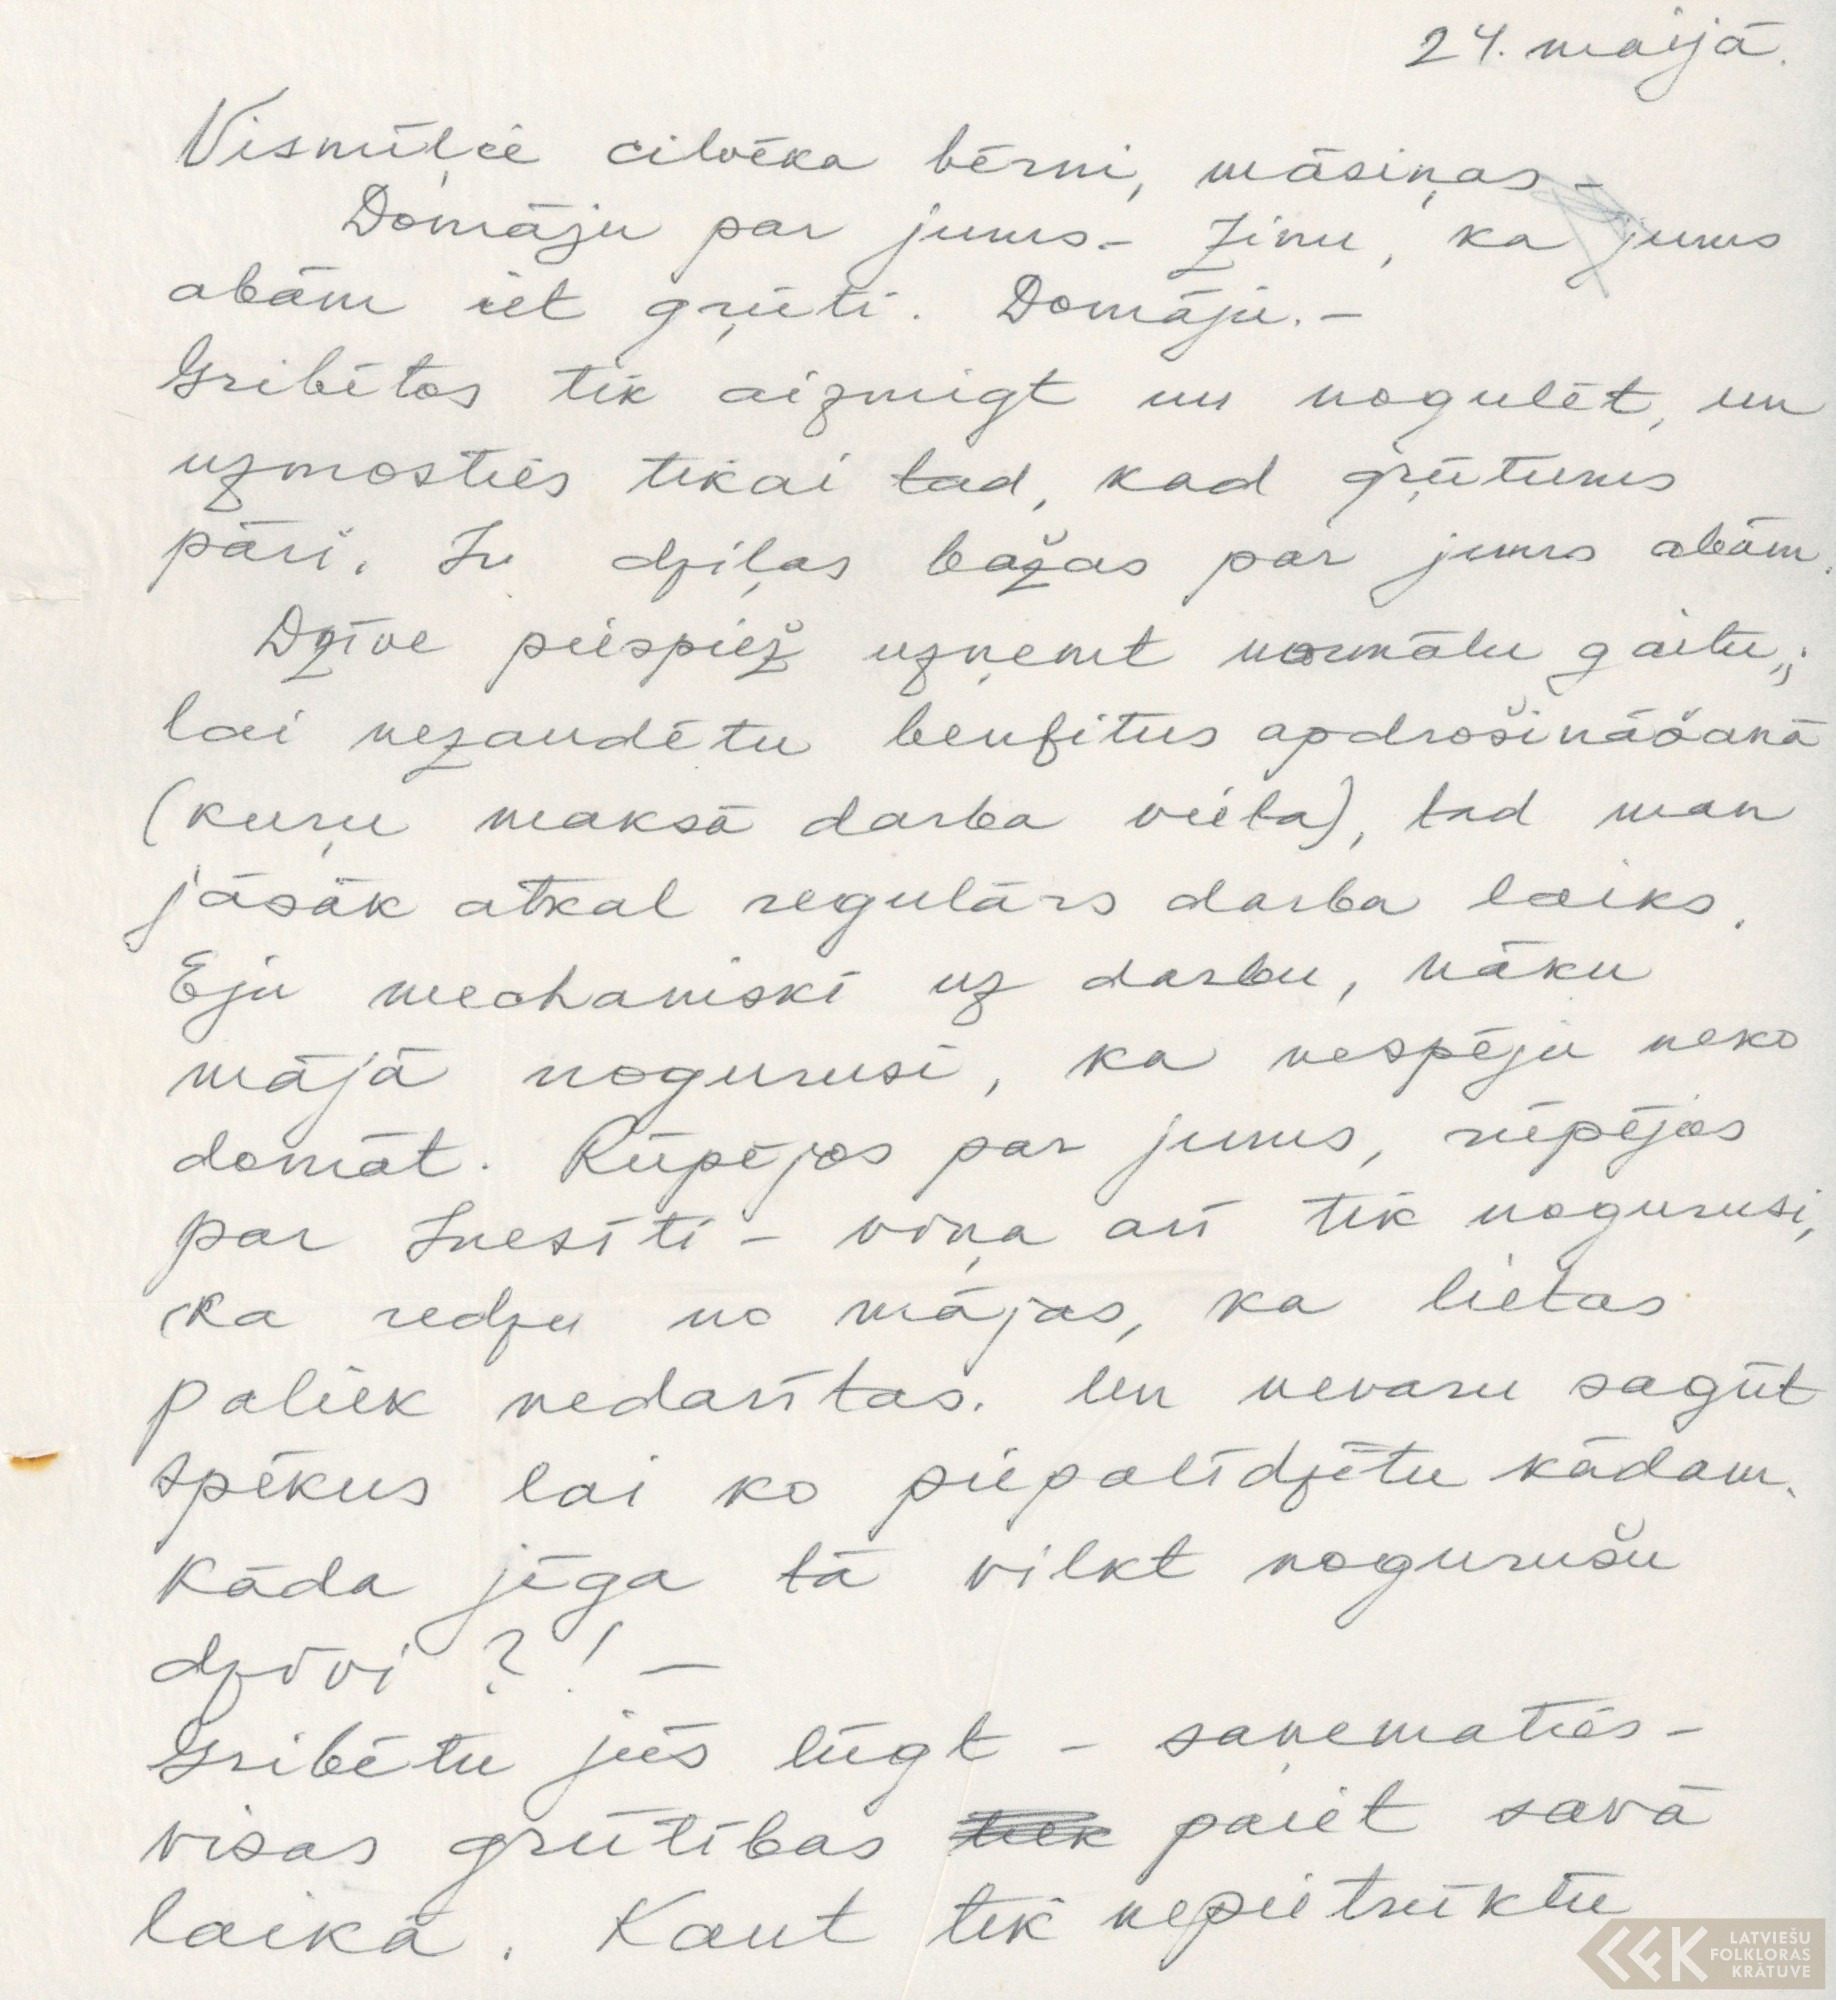 24. maijā.
Vismīļie cilvēka bērni, māsiņas –
Domāju par jums – Zinu, ka jums
abām iet gŗūti. Domāju. –
Gribētos tik aizmigt un nogulēt, un
uzmosties tikai tad, kad gŗūtums
pāri. Ir dziļas bažas par jums abām.
Dzīve piespiež uzņemt normālu gaitu,;
lai nezaudētu benfitus apdrošināšanā
(kuŗu maksā darba vieta), tad man
jāsāk atkal regulārs darba laiks.
Eju mechaniski uz darbu, nāku
mājā nogurusi, ka nespēju neko
domāt. Rūpējos par jums, rūpējos
par Inesīti – viņa arī tik nogurusi,
ka redzu no mājas, ka lietas
paliek nedarītas. Un nevaru sagūt
spēkus lai ko piepalīdzētu kādam.
Kāda jēga tā vilkt nogurušu
dzīvi?! –
Gribētu jūs lūgt – saņematies –
visas grūtības tiek paiet savā
laikā. Kaut tik nepietrūktu
LATVIEŠU
FOLKLORAS
KRĀTUVE